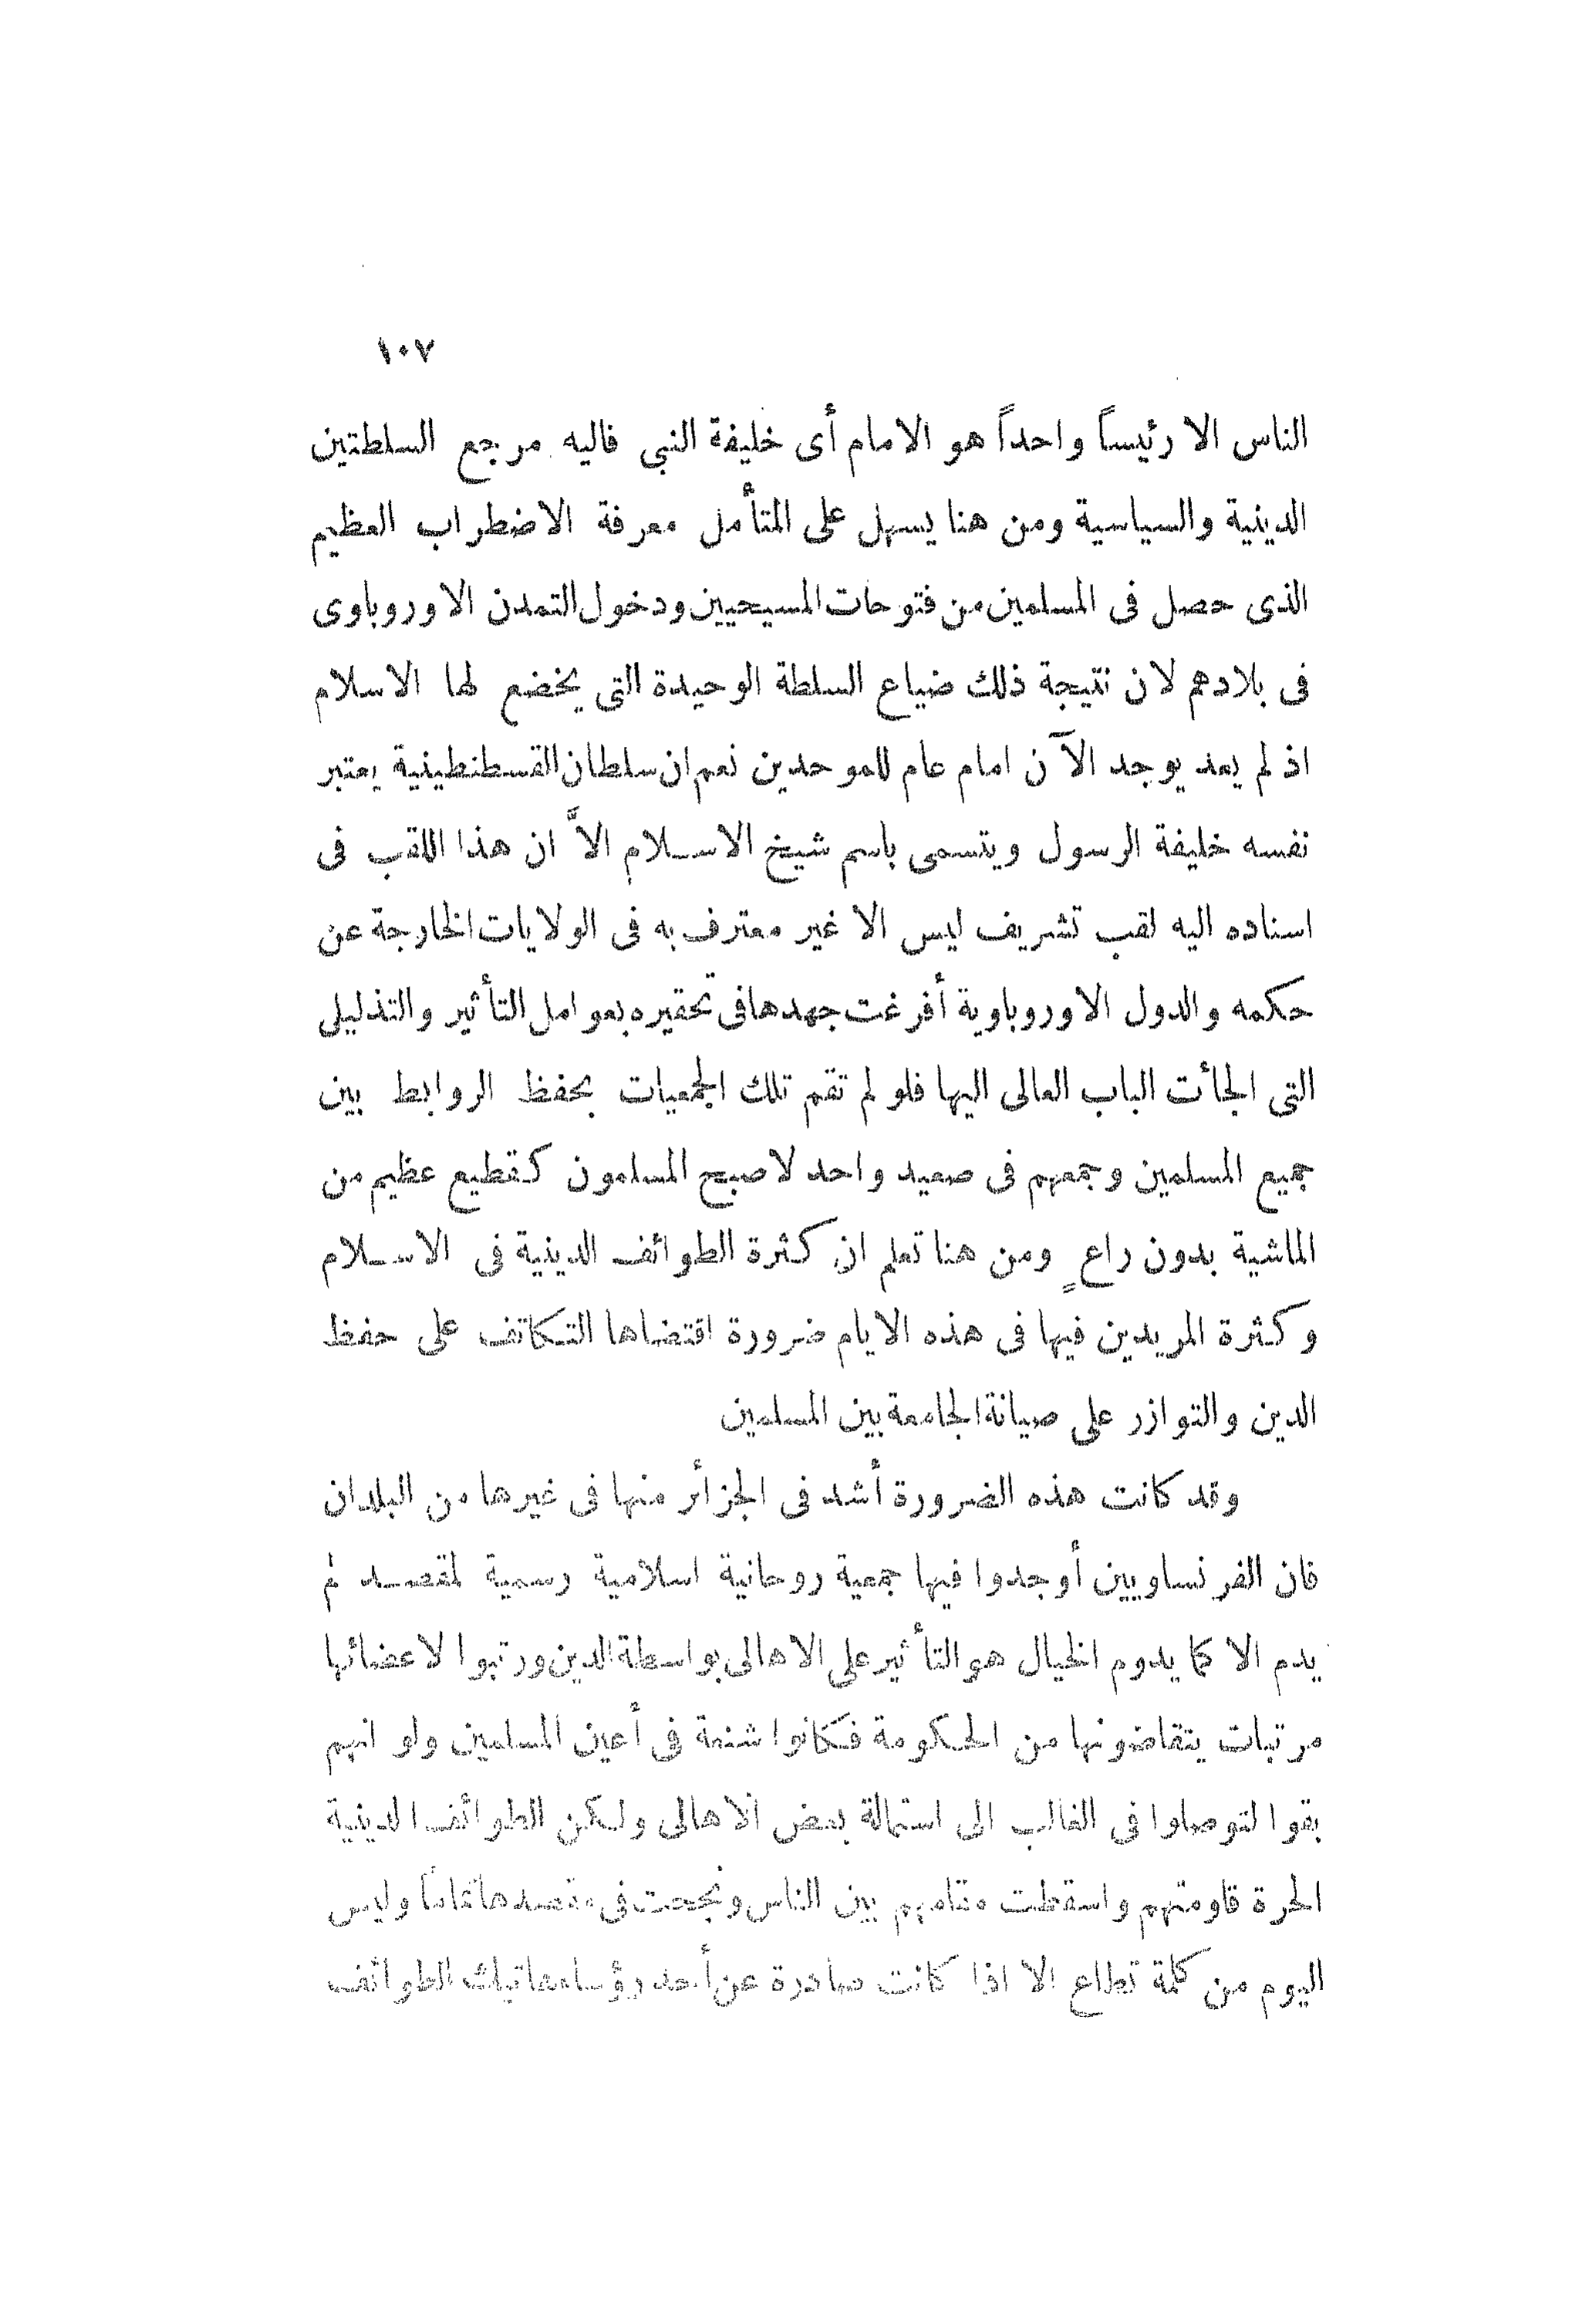 ١٠٧
الناس الا رئيساً واحداً هو الامام أى خليفة النبى فاليه مرجع السلطتين
الدينية والسياسية ومن هنا يسهل على المتأمل معرفة الاضطراب العظيم
الذى حصل فى المسلمين من فتوحات المسيحيين ودخول التمدن الاوروباوى
فى بلادهم لان نتيجة ذلك ضياع السلطة الوحيدة التى يخضع لها الاسلام
اذ لم يعد يوجد الآن امام عام للموحدين نعم ان سلطان القسطنطينية يعتبر
نفسه خليفة الرسول ويتسمى باسم شيخ الاسلام الاَّ ان هذا اللقب فى
اسناده اليه لقب تشريف ليس الا غير معترف به فى الولايات الخارجة عن
حكمه والدول الاوروباوية أفرغت جهدها فى تحقيره بعوامل التأثير والتذليل
التى الجأت الباب العالى اليها فلو لم تقم تلك الجمعيات بحفظ الروابط بين
جميع المسلمين وجمعهم فى صعيد واحد لاصبح المسلمون كقطيع عظيم من
الماشية بدون راعٍ ومن هنا تعلم ان كثرة الطوائف الدينية فى الاسلام
وكثرة المريدين فيها فى هذه الايام ضرورة اقتضاها التكاتف على حفظ
الدين والتوازر على صيانة الجامعة بين المسلمين
وقد كانت هذه الضرورة أشد فى الجزائر منها فى غيرها من البلدان
فان الفرنساويين أوجدوا فيها جمعية روحانية اسلامية رسمية لمقصد لم
يدم الا كما يدوم الخيال هو التأثير على الاهالى بواسطة الدين ورتبوا لاعضائها
مرتبات يتقاضونها من الحكومة فكانوا شنعة فى أعين المسلمين ولو انهم
بقوا لتوصلوا فى الغالب الى استمالة بعض الاهالى ولكن الطوائف الدينية
الحرة قاومتهم واسقطت مقامهم بين الناس ونجحت فى مقصدها تماماً وليس
اليوم من كلمة تطاع الا اذا كانت صادرة عن أحد رؤساء هاتيك الطوائف